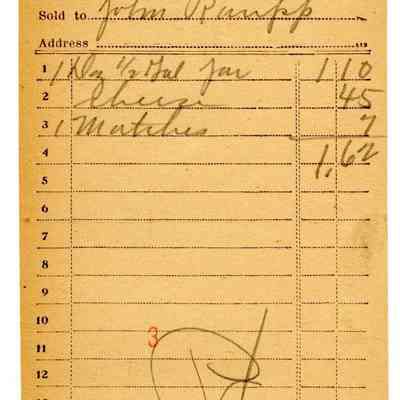 Sold to John Rumpp
Address
1 1 Doz 1/2 Gal Jar 1 10
2 Cheese 45
3 1 Matches 7
4 1.62
5
6
7
8
9
10
3
11
12
Pd